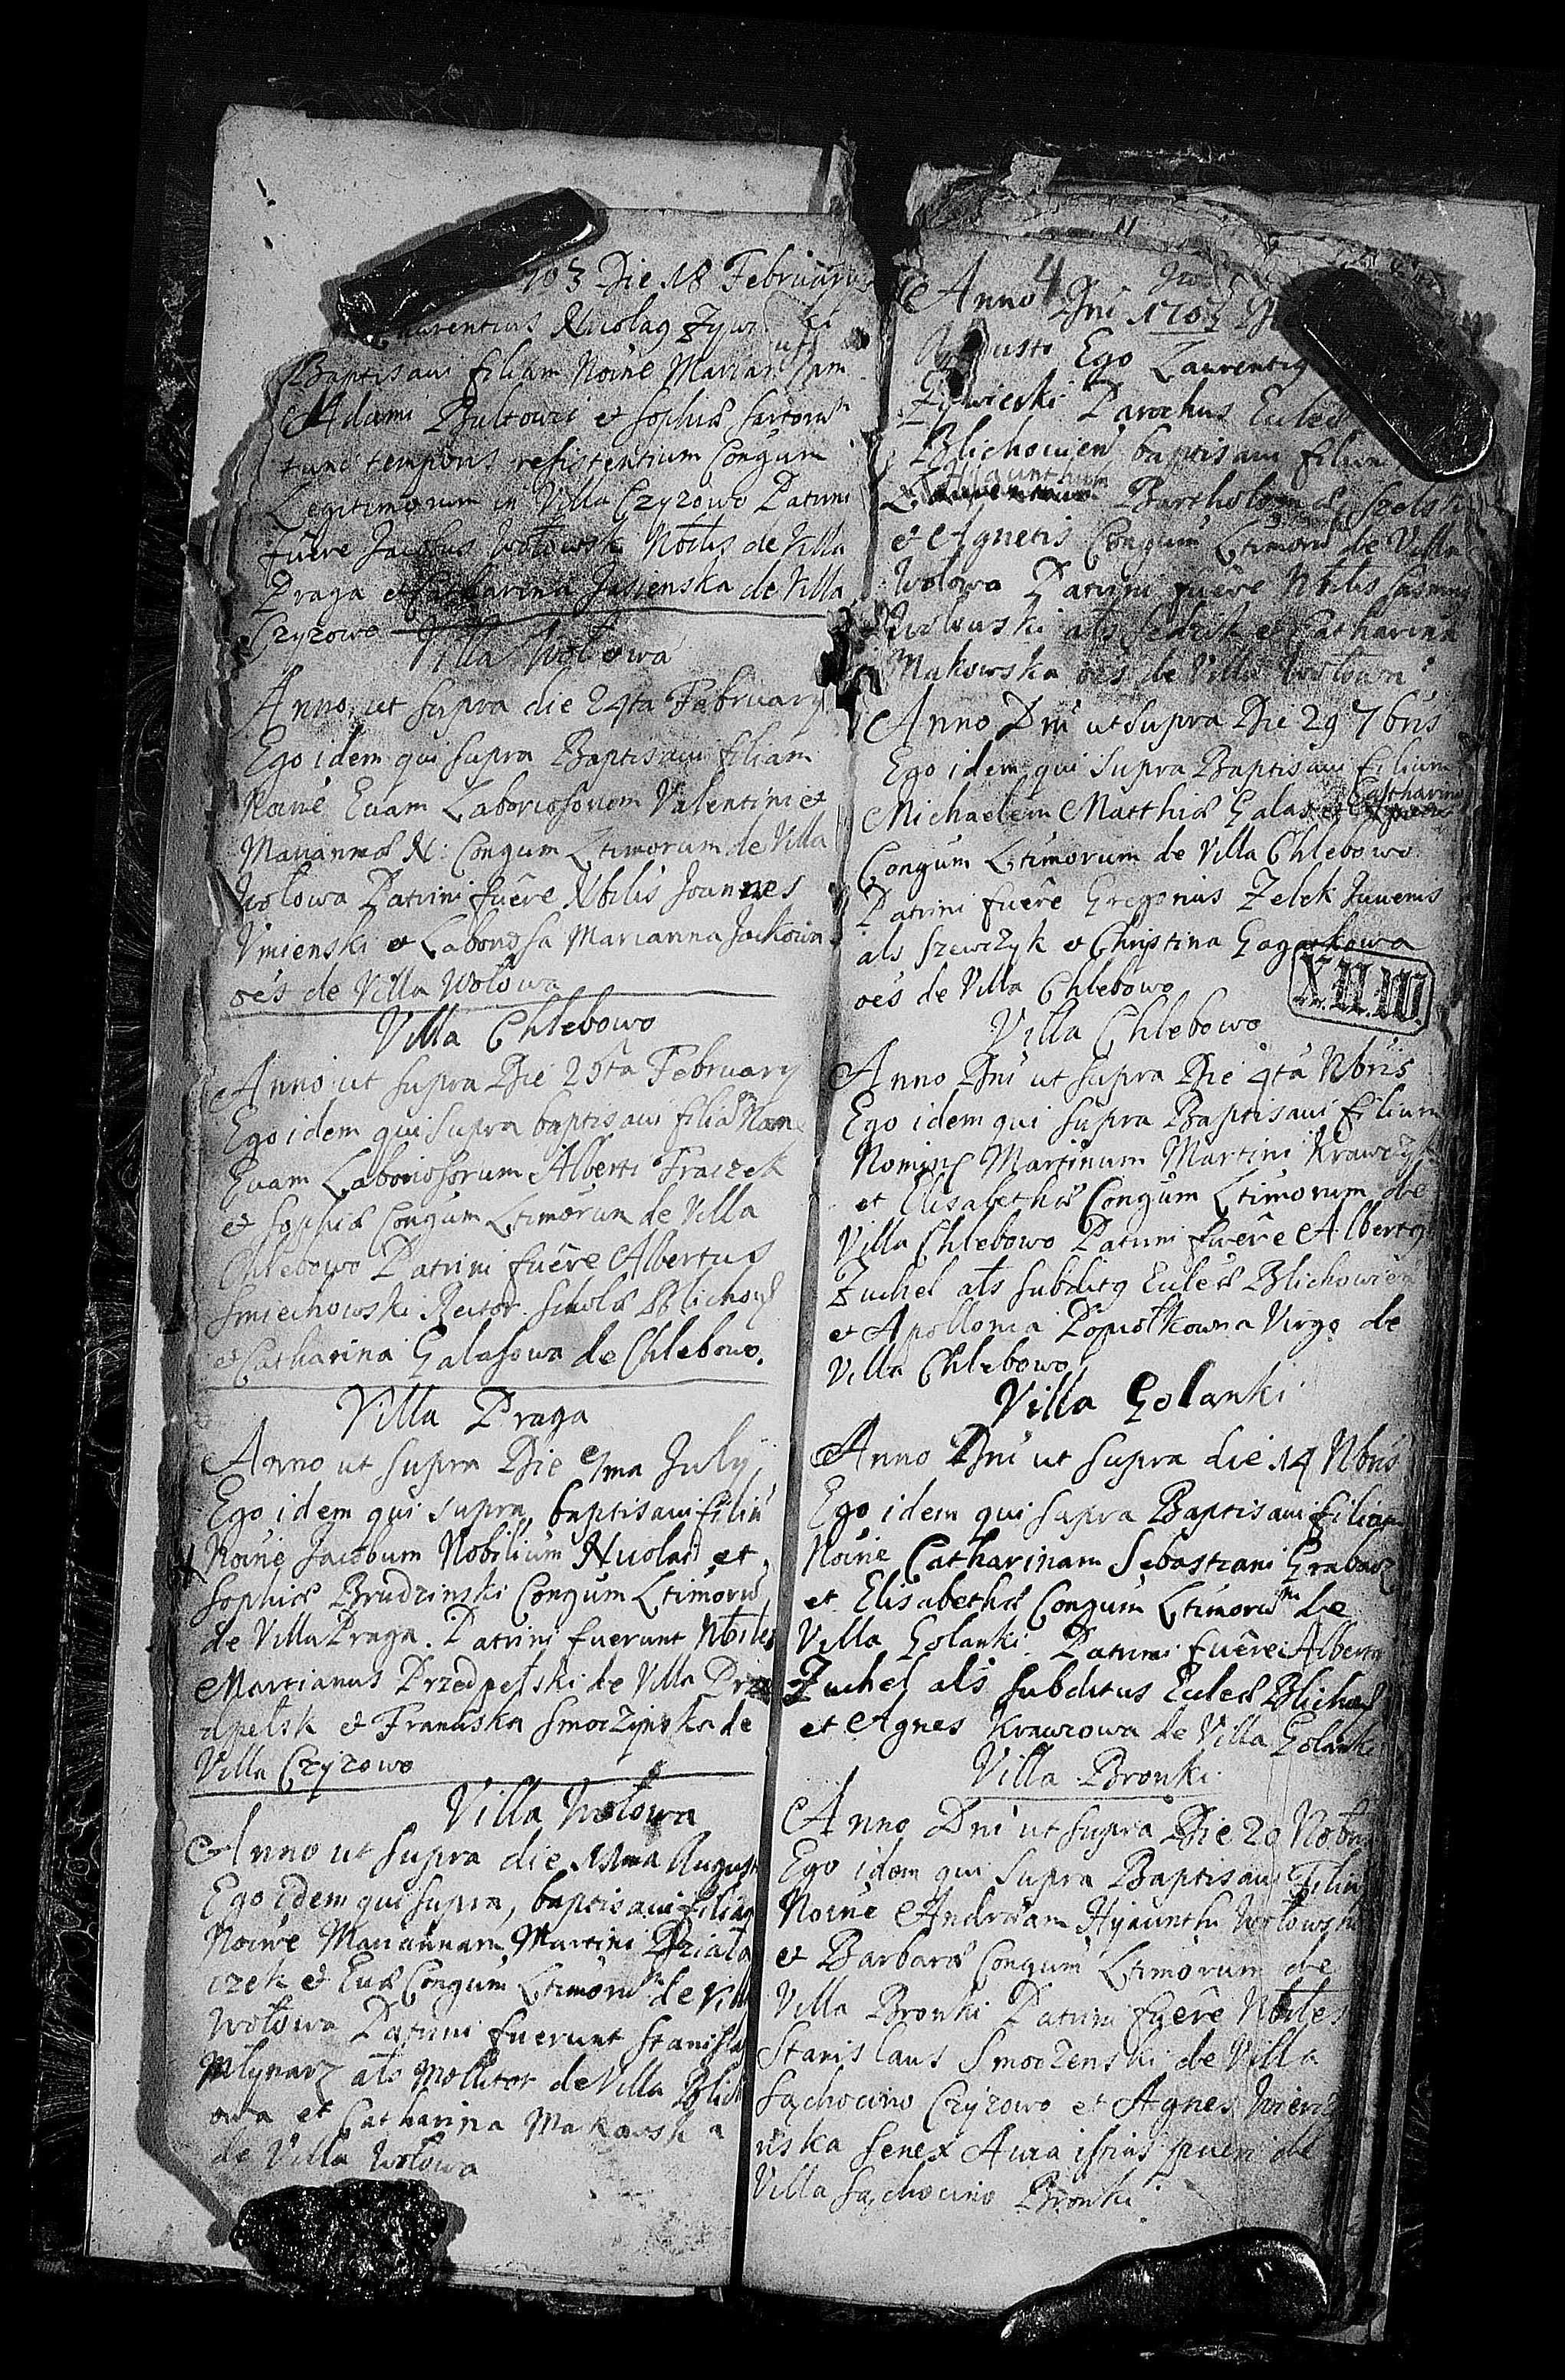 703 Die 18 February
Laurentius Nicolaq Zyw
Baptisaui filiam Noine Marian
Adami Bultowic et Sophiæ sartorum
tunc temporis resistentium Congum
Legitimorum in Villa Czyzowo Patrini
fuere Jacobus Wołowski Nbilis de Villa
Praga et Catharina Jasienska de Villa
Czyzowo
Villa Wołowa
Anno ut supra die 24ta February
Ego idem qui supra Baptisaui filiam
Noine Euam Laboriosorum Valentini et
Mariannæ N: Congum Ltimorum de Villa
Wołowa Patrini fuêre Nbilis Joannes
Vmienski et Laboriosa Marianna Jackowa
oes de Villa Wołowa
Villa Chlebowo
Anno ut supra Die 25ta February
Ego idem qui supra baptisaui filiã Noine
Euam Laboriosorum Alberti Fraczek
et Sophiæ Congum Ltimorum de Villa
Chlebowo Patrini fuêre Albertus
Smiechowski Rector Scholæ Blichou
et Catharina Galasowa de Chlebowo.
Villa Praga
Anno ut supra Die ma July
Ego idem qui supra, baptisaui filiũ
Noine Jacobum Nobilium Nicolai et
Sophiæ Brudzinski Congum Ltimorũ
de Villa Praga. Patrini fuerunt Nbiles
Martianus Przedpełski de Villa Prze
dpełsk et Franciska Smoczynska de
Villa Czyzowo
Villa Wołowa
Anno ut supra die 11ma August
Ego idem qui supra, baptisaui filiam
Noine Mariannam Martini Działa
czek et Euæ Congum Ltimorũ de Villa
Wołowa Patrini fuerunt Stanisla
Młynarz ałs Mollitor de Villa Blich
owa et Catharina Makowska
de Villa Wołowa
11
Anno 4 Dni 1703
Augusti Ego Laurentiq
Zywicski Parochus Eccles
Blichouien baptisaui filium
Hijacinthum Bartholomæi Szelski
et Agnetis Congum Ltimorũ de Villa
Wołowa Patrini fuêre Nbilis Casimir
Wołowski ałs et Catharina
Makowska oes de Villa Wołowa
Anno Dni ut supra Die 29 7bris
Ego idem qui supra Baptisaui filium
Michaelem Matthiæ Galas et Catharinæ
Congum Ltimorum de Villa Chlebowo
Patrini fuêre Gregorius Zelek Juuenis
als Szewczyk et Christina Gagatkowa
oes de Villa Chlebowo
Villa Chlebowo
Anno Dni ut supra Die 4ta Nbris
Ego idem qui supra Baptisaui filium
Nomine Martinum Martini Krawczyk
et Elisabethæ Congum Ltimorum de
Villa Chlebowo Patrini fuêre Albertq
Zuchel ałs subditq Eccles Blichowien
et Apollonia Popiołkowna Virgo de
Villa Chlebowo
Villa Golanki
Anno Dni ut supra die 14 Nbris
Ego idem qui supra Baptisaui filiam
Noine Catharinam Sebastiani Grabarz
et Elisabethæ Congum Ltimorũ de
Villa Golanki Patrini fuêre Albertus
Zuchel als subditus Eccles Blichou
et Agnes Krawcowa de Villa Golanki
Villa Bronki
Anno Dni ut supra Die 20 Nobris
Ego idem qui supra Baptisaui filiũ
Noine Andræam Hijacinthi Wołowski
et Barbaræ Congum Ltimorum de
Villa Bronki Patrini fuêre Nbiles
Stanislaus Smoczenski de Villa
Sąchocino Czyzowo et Agnes
uska senex Auia istius pueri de
Villa Sąchocino Bronki